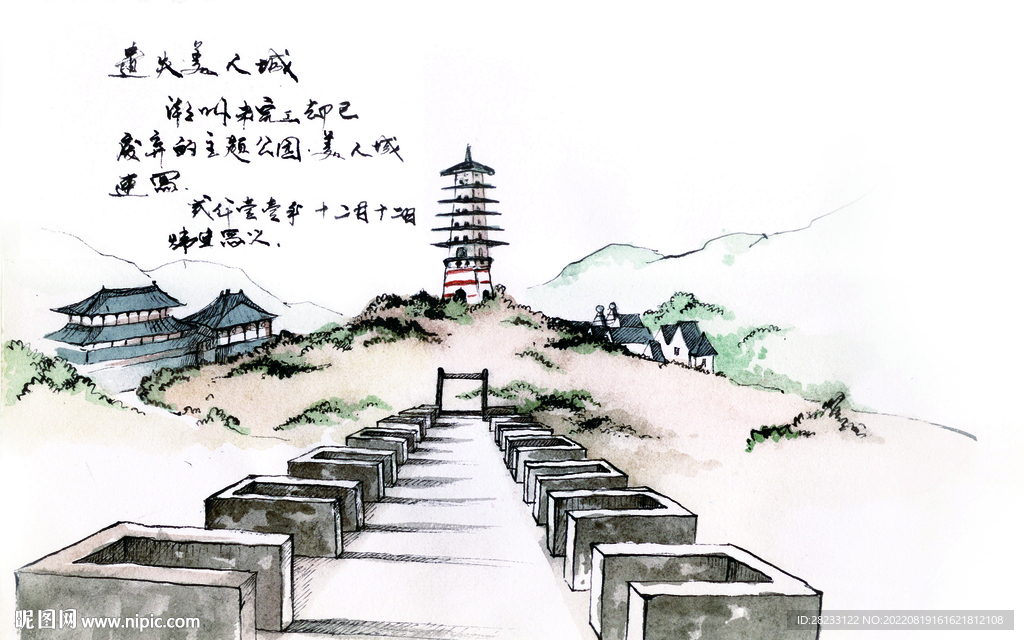 遗失美人城
潮州未完工却已
废弃的主题公园·美人城
速写.
弍仟壹壹年 十二月十二日
速写之.
昵图网 www.nipic.com
ID:28233122 NO:20220819161621812108